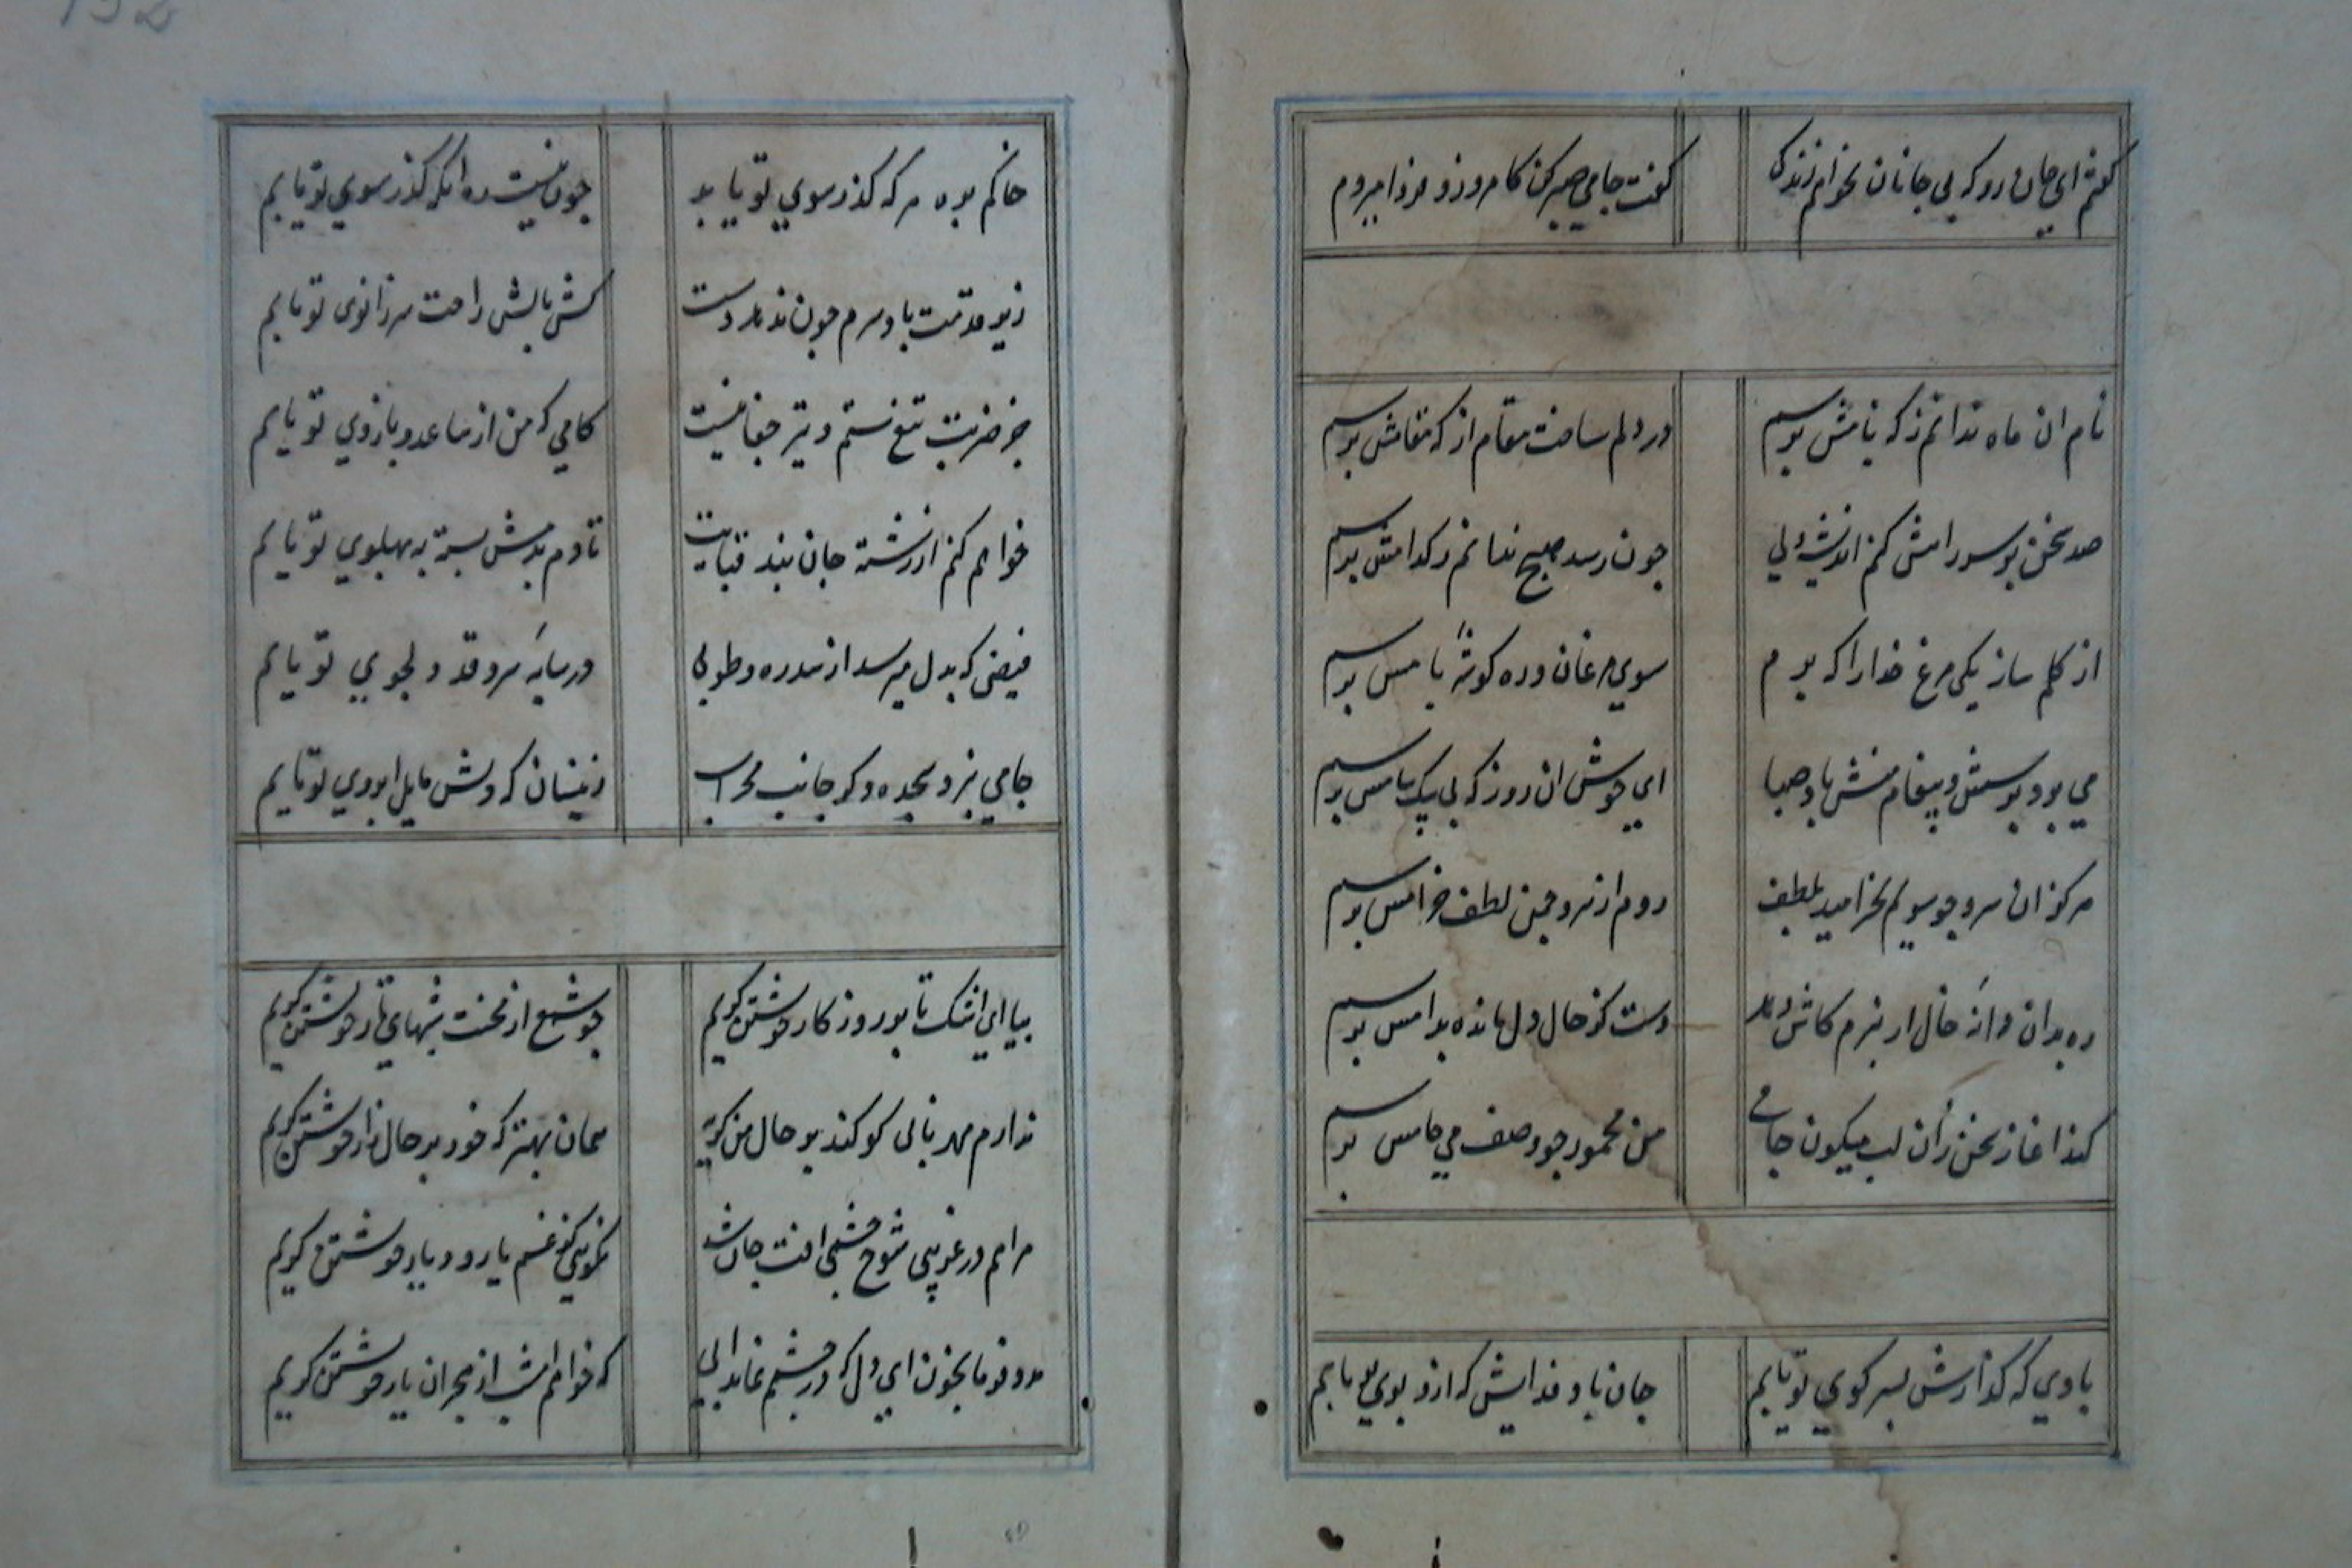 گفتم ای جان رو که بی جانان نخواهم زندگی
گفت جامی صبر کن کامروز و فردا میروم
نام ان ماه ندانم ز که نامش پرسم
در دلم ساخت مقام از که مقامش پرسم
صد سخن بهر سوالش کنم اندیشه ولی
چون رسد هیچ ندانم ز کدامش پرسم
از کلم ساز یکی مرغ خدارا که پرم
سوی مرغان و ره گوشهٔ بامش پرسم
می برد پرسش و پیغام منش باد صبا
ای خوش ان روز که بی پیک پیامش پرسم
هرکز ان سرو چو سویم نخرامید بلطف
روم از سرو چمن لطف خرامش پرسم
ره بدان دانهٔ خال ار نبرم کاش دهد
دست کز حال دل مانده بدامش پرسم
کند اغاز سخن زان لب میکون جامی
من مخمور چو وصف می جامش پرسم
بادی که گذارش بسر کوی تو یابم
جان باد فدایش که ازو بوی تو یابم
خاکم بره هرکه گذر سوی تو یابد
چون نیست ره انکه گذر سوی تو یابم
زیر قدمت باد سرم چون ندهد دست
کش بالش راحت سر زانوی تو یابم
جز ضربت تیغ ستم و تیر جفا نیست
کامی که من از ساعد و بازوی تو یابم
خواهم کنم از رشتهٔ جان بند قبایت
تا دم بدمش بسته به پهلوی تو یابم
فیضی که بدل میرسد از سدره و طوبی
در سایهٔ سرو قد دلجوی تو یابم
جامی نبرد سجده دکر جانب محراب
زینسان که دلش مایل ابروی تو یابم
بیا ای اشک تا بر روزکار خویشتن گریم
چو شمع از محنت شبهای تار خویشتن گریم
ندارم مهربانی کو کند بر حال من گریه
همان بهتر که خود بر حال زار خویشتن گریم
مرا هم در غریبی شوخ چشمی افت جان شد
نکویی کز غم یار و دیار خویشتن گریم
مدد فرما بخون ای دل که در چشمم نماند ابی
که خواهم امشب از هجران یار خویشتن گریم